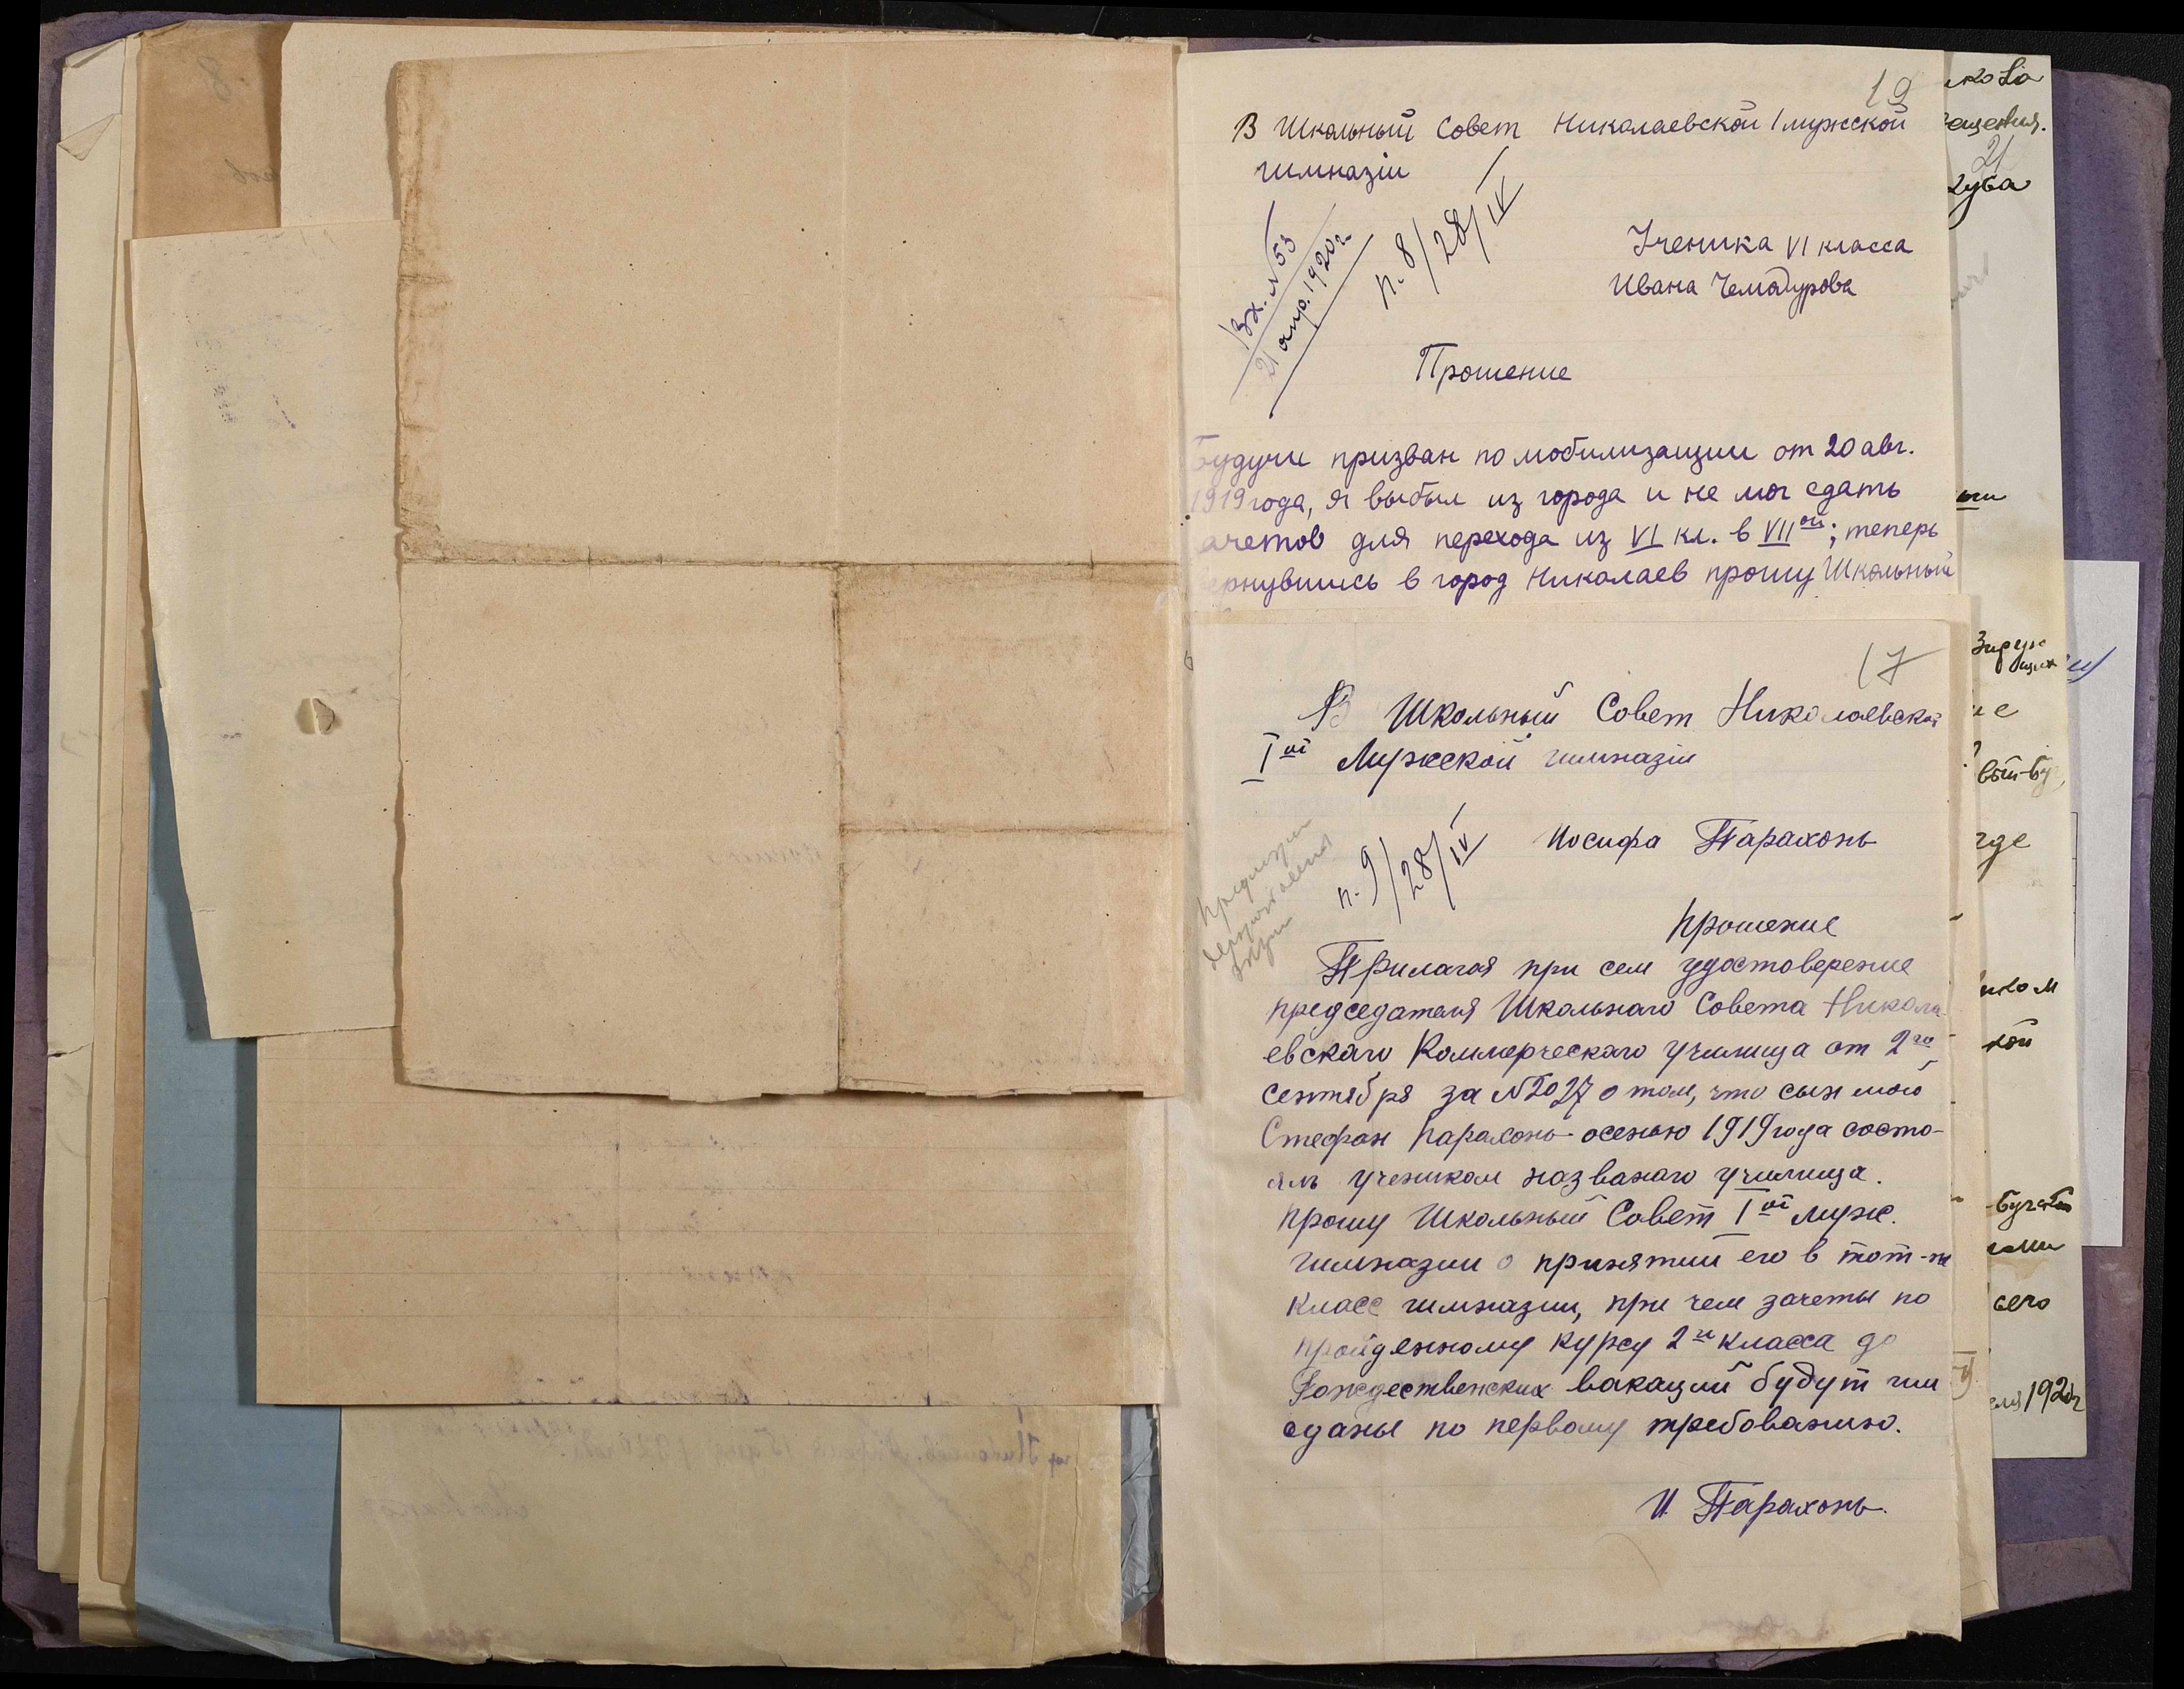 19
В Школьный Совет Николаевской I мужской
гимназіи
Вх. N 53
21 апр. 1920 г.
п. 8/28/IV
Ученика VI класса
Ивана Чемодурова
Прошение
Будучи призван по мобилизации от 20 авг.
1919 года, я выбыл из города и не мог сдать
зачетов для перехода из VI кл. в VII ой; теперь
вернувшись в город Николаев прошу Школьный
17
В Школьный Совет Николаевской
I ой Мужской гимназіи
п. 9/28/IV
Иосифа Парахонь
Прошение
Прилагая при сем удостоверение
председателя Школьнаго Совета Никола-
евскаго Коммерческаго училища от 2 го
сентября за N 2027 о том, что сын мой
Стефан Парахонь осенью 1919 года состо-
ялъ учеником названаго училища.
Прошу Школьный Совет I ой муж.
гимназии о принятии его в тот-же
класс гимназии, при чем зачеты по
пройденному курсу 2 го класса до
Рождественских вакаций будут им
сданы по первому требованию.
И. Парахонь.
21
где
кой
сего
1920 г